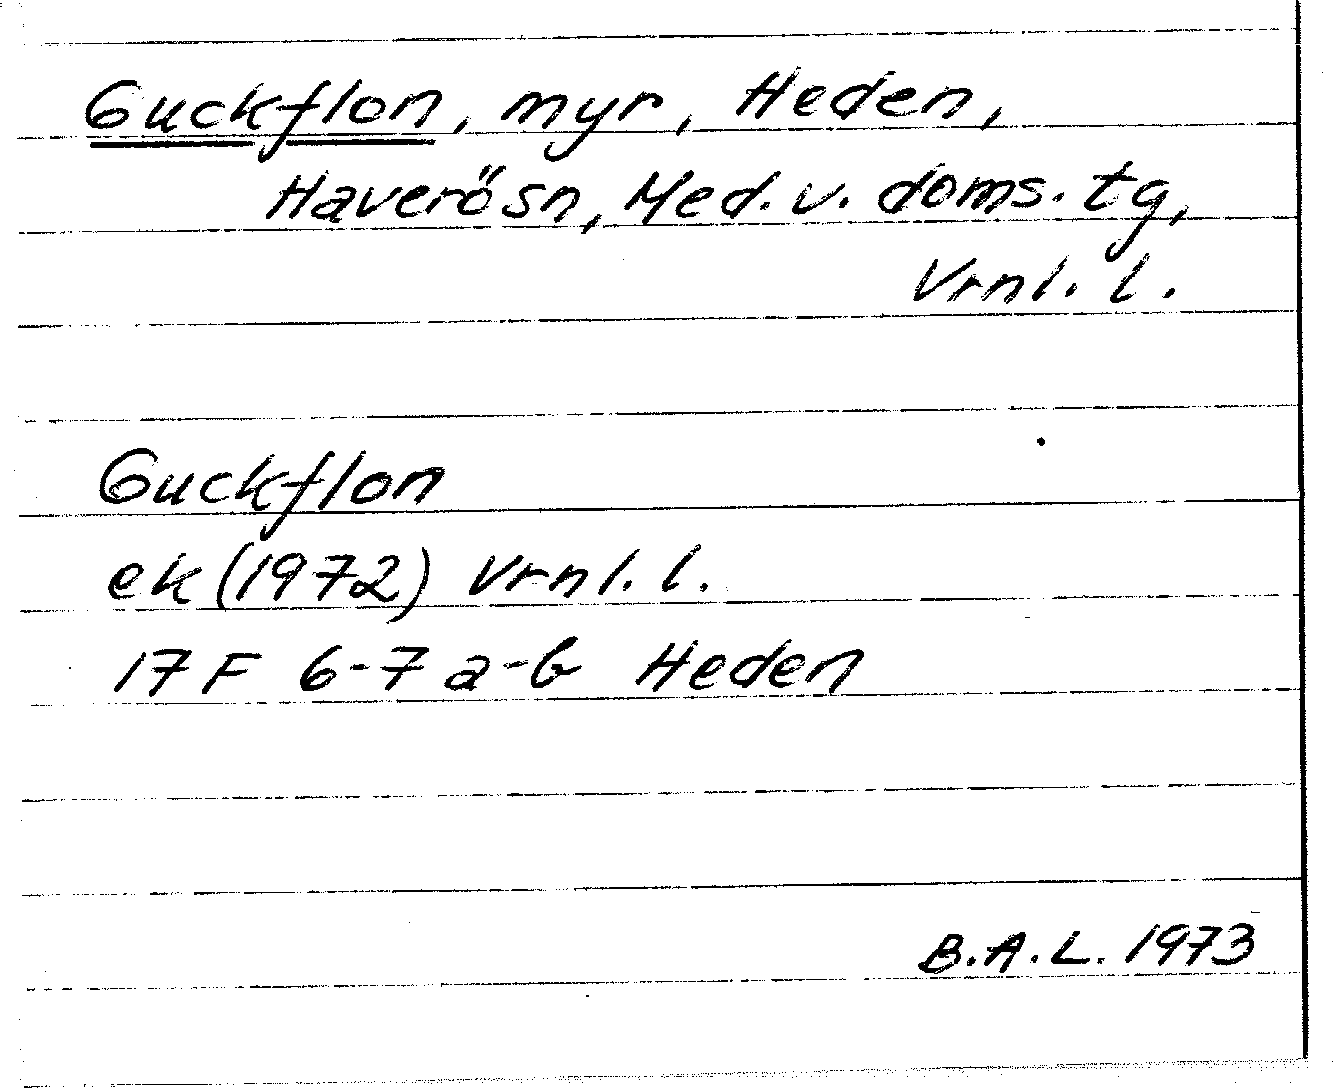 Guckflon, myr, Heden,
Haverösn, Med. v. doms. tg,
Vrnl. l.
Guckflon
ek (1972) Vrnl. l.
17 F 6-7 a-b Heden
B.A.L. 1973